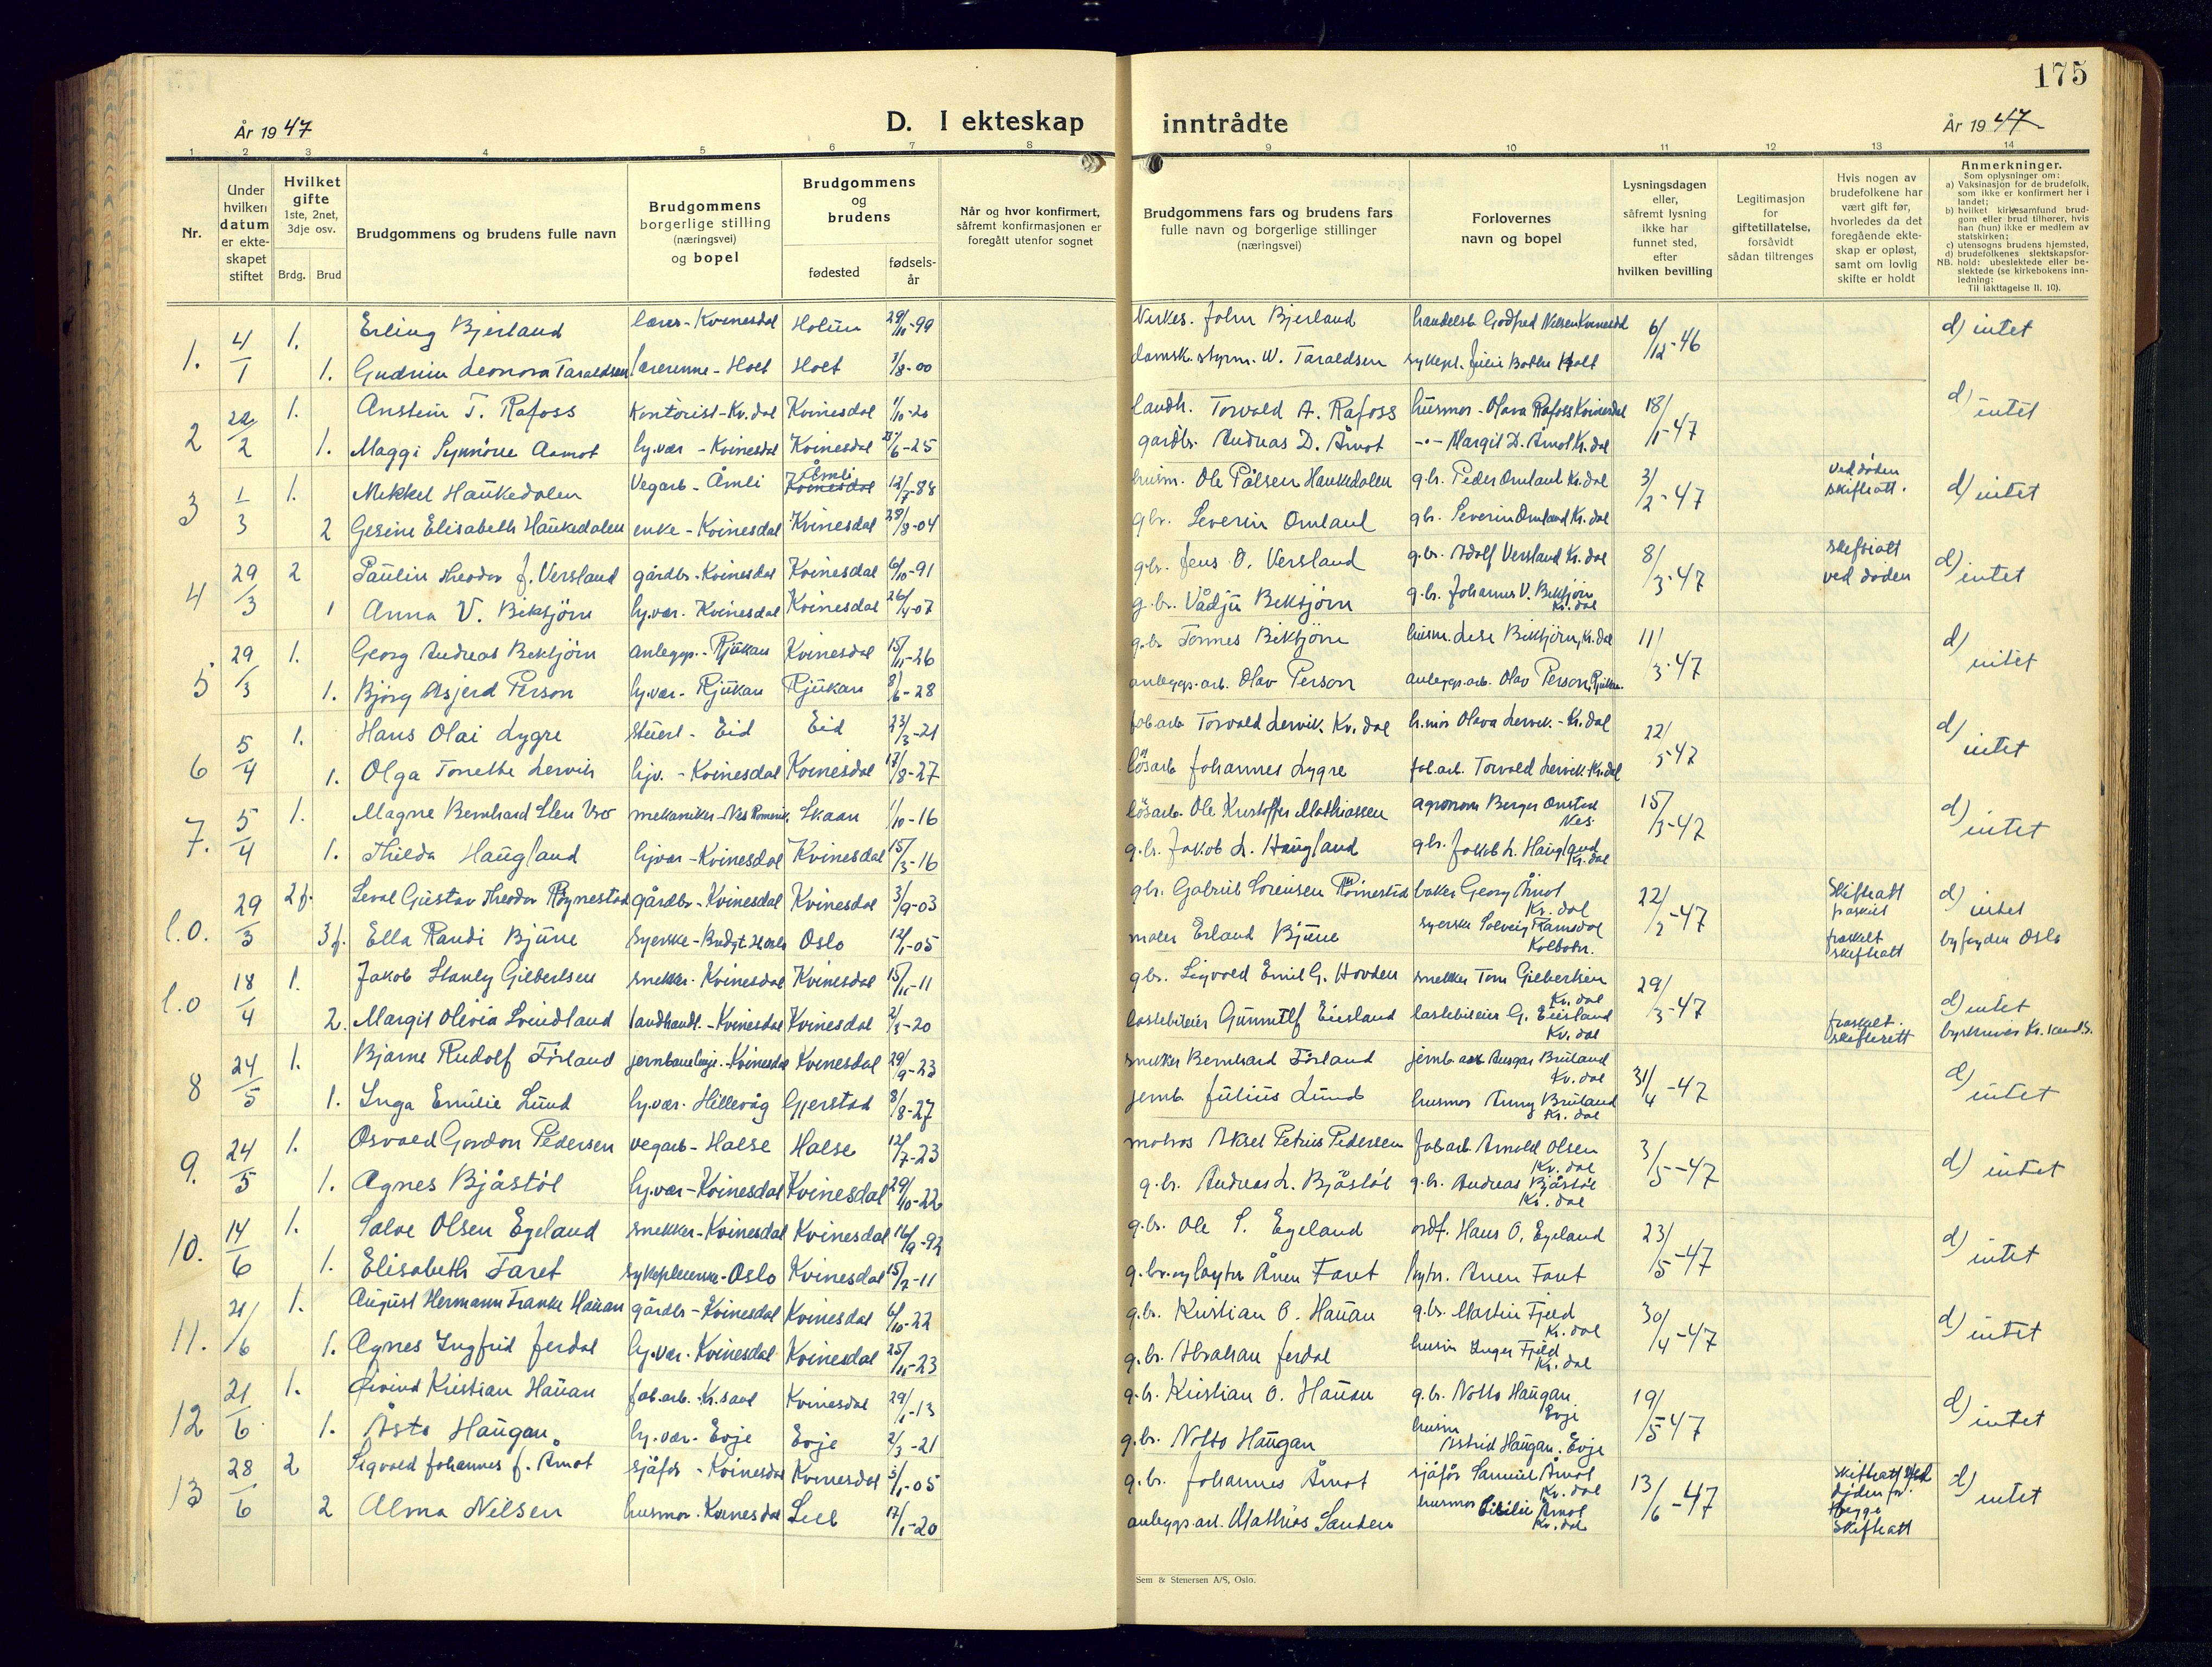 175
År 1947
D. I ekteskap inntrådte
År 1947
1 2 3 4 5 6 7 8 9 10 11 12 13 14
Nr.
Under hvilken datum er ekteskapet stiftet
Hvilket gifte 1ste, 2net, 3dje osv.
Brdg. Brud
Brudgommens og brudens fulle navn
Brudgommens borgerlige stilling (næringsvei) og bopel
Brudgommens og brudens
fødested
fødselsår
Når og hvor konfirmert, såfremt konfirmasjonen er foregått utenfor sognet
Brudgommens fars og brudens fars fulle navn og borgerlige stillinger (næringsvei)
Forlovernes navn og bopel
Lysningsdagen eller, såfremt lysning ikke har funnet sted, efter hvilken bevilling
Legitimasjon for giftetillatelse, forsåvidt sådan tiltrenges
Hvis nogen av brudefolkene har vært gift før, hvorledes da det foregående ekteskap er opløst, samt om lovlig skifte er holdt
Anmerkninger.
Som oplysninger om:
a) Vaksinasjon for de brudefolk, som ikke er konfirmert her i landet;
b) hvilket kirkesamfund brudgom eller brud tilhører, hvis han (hun) ikke er medlem av statskirken;
c) utensogns brudens hjemsted,
d) brudefolkenes slektskapsforhold: ubeslektede eller beslektede (se kirkebokens innledning:
NB.
Til iakttagelse II. 10).
1. 4/1 1. Erling Bjerland lærer - Kvinesdal Holum 29/11-99 Virkes. John Bjerland handelsb. Godfred Nilsen Kvinesdal 6/12-46 d) intet
1. Gudrun Leonora Taraldsen lærerinne - Holt Holt 3/8-00 damsk. styrm. W. Taraldsen sykepl. Julie Bothe Holt
2 22/2 1. Anstein T. Rafoss Kontorist - Kv.dal Kvinesdal 1/10-20 landh. Torvald A. Rafoss husmor - Olava Rafoss Kvinesdal 18/1-47 d) intet
1. Maggi Synnöve Aamot hj.vær - Kvinesdal Kvinesdal 23/6-25 gårdbr. Andreas D. Åmot -"- Margit D. Åmot Kv.dal
3 1/3 1. Mikkel Haukedalen Vegarb - Åmli Åmli Kvinesdal 12/7-88 husm. Ole Pålsen Haukedalen g.br. Peder Omland Kv.dal 3/2-47 ved döden skifteatt. d) intet
2 Gesine Elisabeth Haukedalen enke - Kvinesdal Kvinesdal 28/8-04 gbr. Severin Omland gbr. Severin Omland Kv.dal
4 29/3 2 Paulin Theodor J. Versland gårdbr. Kvinesdal Kvinesdal 6/10-91 g.br. Jens O. Versland g.br. Adolf Versland Kv.dal 8/3-47 skifteatt ved döden d) intet
1 Anna V. Bektjörn hj.vær. Kvinesdal Kvinesdal 26/4-07 g.br. Vådju Bektjörn g.br. Johannes V. Bektjörn Kv.dal
5 29/3 1. Georg Andreas Bektjörn anleggs. - Rjukan Kvinesdal 15/11-26 g.br Tonnes Bektjörn husm. Lise Bektjörn, Kv.dal 11/3-47 d) intet
1. Björg Asjerd Person hj.vær - Rjukan Rjukan 8/6-28 anleggs.arb. Olav Person anleggs.arb. Olav Person, Rjukan.
6 5/4 1. Hans Olai Lygre stuert - Eid Eid 23/3-21 fab.arb Torvald Lervik. Kv.dal h.mor Olava Lervik - Kv.dal 22/5-47 d) intet
1. Olga Tonette Lervik hjv. - Kvinesdal Kvinesdal 17/8-27 lösarb Johannes Lygre fab.arb. Torvald Lervik Kv.dal
7. 5/4 1. Magne Bernhard mekaniker - Nes Romerik. Skaan 1/10-16 lösarb. Ole Kristoffer Mathiassen agronom Berger Onstad Nes 15/3-47 d) intet
1. Thilda Haugland hjvær - Kvinesdal Kvinesdal 15/3-16 g.br. Jakob L. Haugland gbr. Jakob L. Haugland Kv.dal
l.o. 29/3 2 f. Gustav Theodor Röynestad gårdbr - Kvinesdal Kvinesdal 3/9-03 gbr. Gabriel Sörensen Röinestad baker Georg Åmot Kv.dal 22/2-47 Skifteatt fraskilt d) intet
3 f. Ella Randi Bjune Syerske - Oslo 12/1-05 maler Erland Bjune syerske Solveig Ramsdal Kolbotn. fraskilt skifteatt byfogden Oslo
l.o 18/4 1. Jakob Stanly Gilbertsen snekker - Kvinesdal Kvinesdal 15/11-11 gbr. Sigvald Emil G. Hovden snekker Tom Gilbertsen Kv.dal 29/3-47 d) intet
2. Margit Olivia Svindland landhandl. - Kvinesdal Kvinesdal 2/3-20 lastebileier Gunnulf Eiesland lastebileier G. Eiesland Kv.dal fraskilt. skifterett byskriver Kr.sand S.
8 24/5 1. Bjarne Rudolf Förland jernbane - Kvinesdal Kvinesdal 29/9-23 snekker Bernhard Förland jernb arb Ansgar Bruland Kv.dal 31/4-47 d) intet
1. Inga Emilie Lund hj.vær. Hillevåg Gjerstad 8/8-27 jernb Julius Lund husmor Anny Bruland Kv.dal
9. 24/5 1. Osvald Gordon Pedersen vegarb - Halse Halse 12/7-23 matros Aksel Petrus Pedersen fabarb Arnold Olsen Kv.dal 3/5-47 d) intet
1. Agnes Bjåstöl hj.vær - Kvinesdal Kvinesdal 29/10-22 g.br. Andreas L. Bjåstöl g.br. Andreas Bjåstöl Kv.dal
10. 14/6 1. Salve Olsen Egeland snekker - Kvinesdal Kvinesdal 16/9-92 g.br. Ole S. Egeland ordf. Hans O. Egeland 23/5-47 d) intet
1. Elisabeth Faret sykepleierske - Oslo Kvinesdal 15/2-11 g.br. og Ånen Faret Ånen Faret
11. 21/6 1. August Hermann Franke Hauan gårdbr - Kvinesdal Kvinesdal 6/10-22 g.br. Kristian O. Hauan g.br. Martin Fjeld Kv.dal 30/4-47 d) intet
1. Agnes Ingfrid Jerdal hj.vær. Kvinesdal Kvinesdal 25/11-23 g.br. Abraham Jerdal husm Inger Fjeld Kv.dal
12 21/6 1. Öivind Kristian Hauan fab.arb. - Kr.sand Kvinesdal 29/1-13 g.br. Kristian O. Hauan g.br. Notto Haugan. Evje 19/5-47 d) intet
1. Åsta Haugan hj.vær - Evje Evje 2/3-21 g.br. Notto Haugan husm Astrid Haugan. Evje
13 28/6 2 Sigvald Johannes J. Åmot sjåför - Kvinesdal Kvinesdal 5/1-05 g.br. Johannes Åmot sjåför Samuel Åmot Kv.dal 13/6-47 skifteatt ved döden for begge skifteatt d) intet
2 Alma Nilsen husmor. Kvinesdal 17/1-20 anleggs arb. Mathias Sanden husmor Åmot Kv.dal
Sem & Stenersen A/S, Oslo.